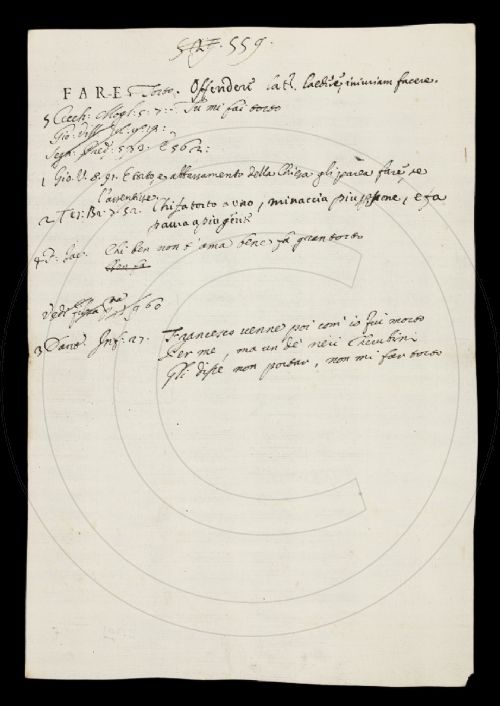 559.
FARE Torto. Offendere lat. laedere, iniuriam facere.
5 Cech: Mogl: 5. 7. Tu mi fai torto
Gio: Vill
Segn: Pred: 533. E 562:
1 Gio. V. 8. 91. E tutto abbassamento della Chiesa gli parea fare, se
l'assentisse
2 Tes: Br: 7. 52. Chi fa torto a uno, minaccia più persone, e fa
paura a più genti
4 F: Iac: Chi ben non t'ama bene fa gran torto
Vedi 960
3 Dant. Inf: 27. Francesco venne poi com' io fui morto
Per me, ma un de' neri Cherubini
Gli disse non portar, non mi far torto